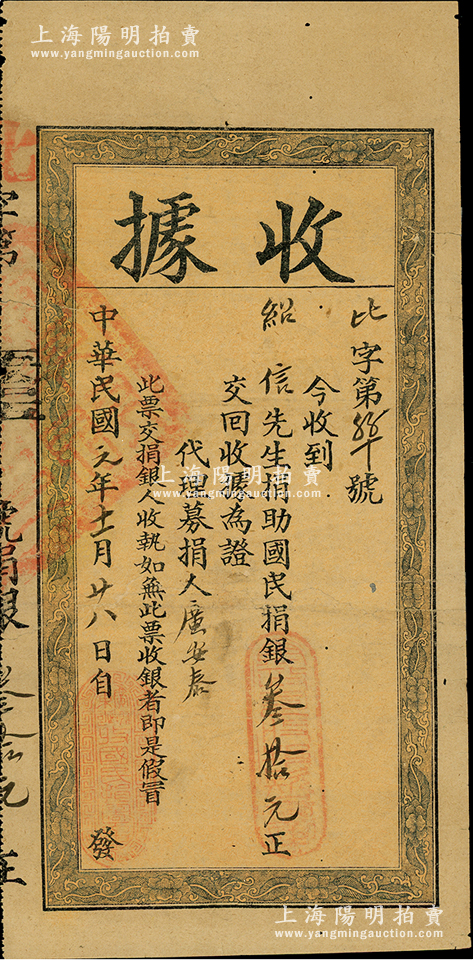 上海陽明拍賣
www.yangmingauction.com
收據
比字第號
今收到
紹信先生捐助國民捐銀叁拾元正
交回收據為證
代理募捐人廣安泰
此票交捐銀人收執如無此票收銀者即是假冒
中華民國元年十一月廿八日自發
字第
號捐銀
元正
上海陽明拍賣
www.yangmingauction.com
上海陽明拍賣
www.yangmingauction.com